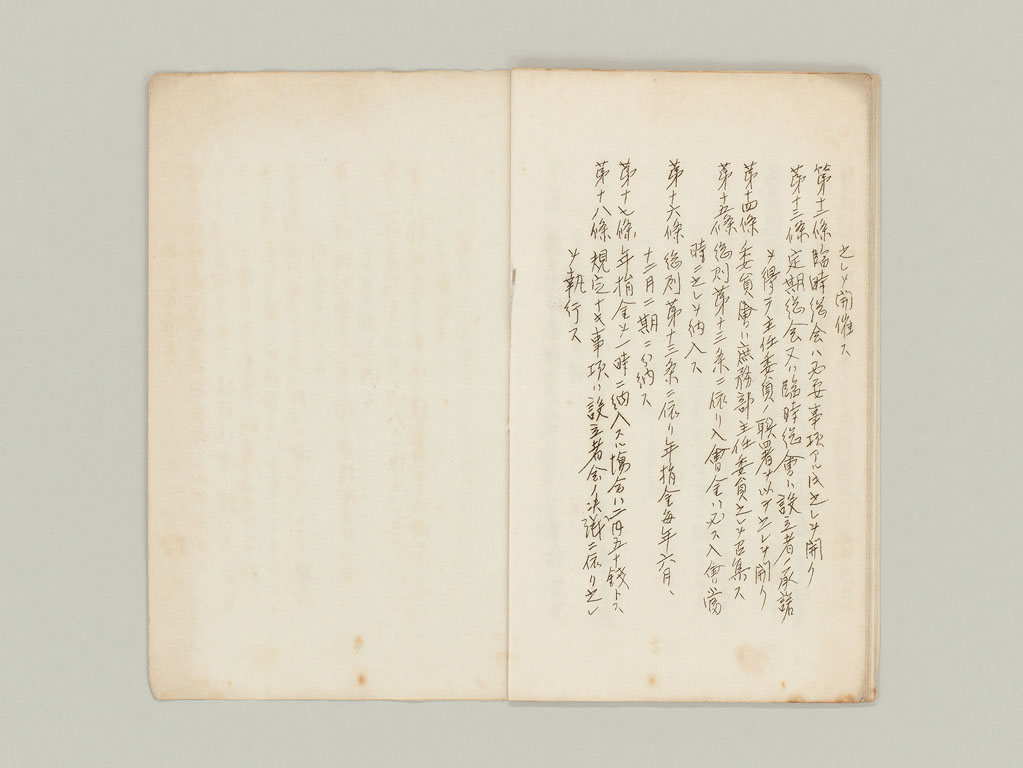 之レヲ開催ス
第十二條 臨時総会ハ必要事項アル氏之レヲ開ク
第十三條 定期総会又ハ臨時総會ハ設立者ノ承諾
ヲ得テ主任委員ノ聯署ヲ以テ之レヲ開ク
第十四條 委員會ハ庶務部主任委員之レヲ召集ス
第十五條 総則第十三条ニ依リ入會金ハ必ス入會ノ當
時ニ之レヲ納入ス
第十六條 総則第十三条ニ依リ年捐金毎年六月、
十二月二期ニ分納ス
第十七條 年捐金ヲ一時ニ納入スル場合ハ二円五十錢トス
第十八條 規定ナキ事項ハ設立者会ノ決議ニ依リ之レ
ヲ執行ス